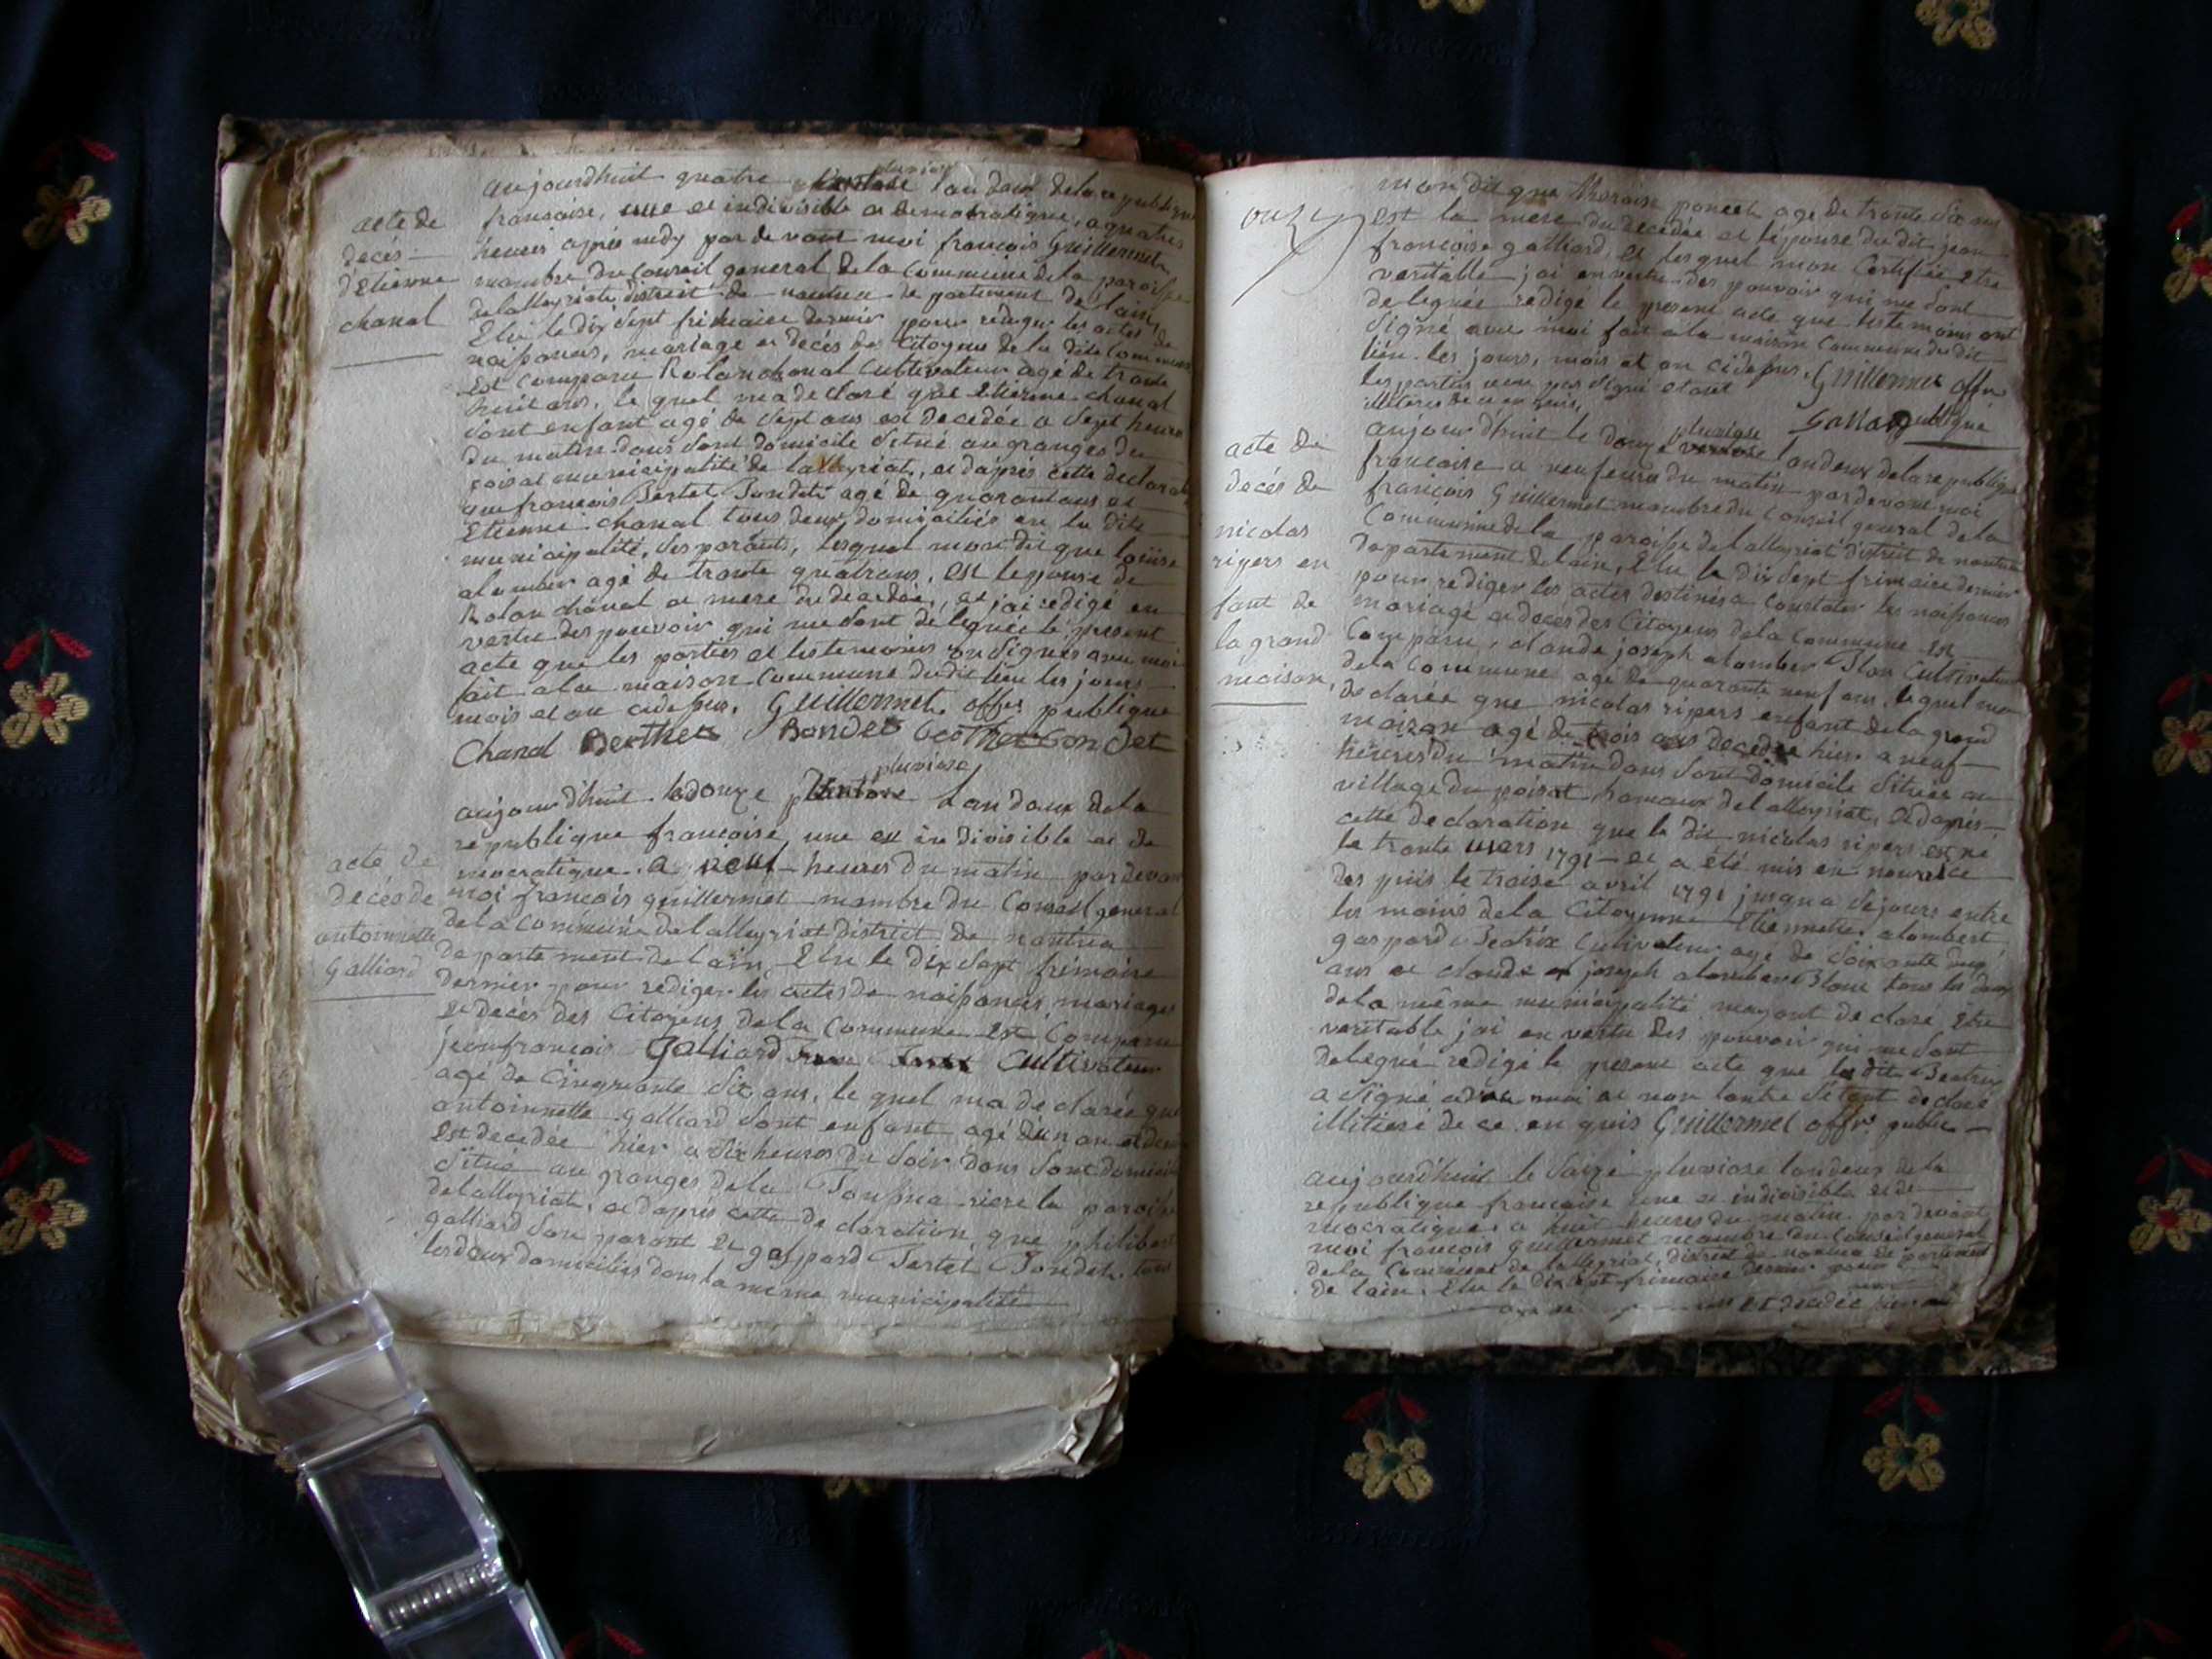 aujourdhuit quatre pluviose lan deux dela republique
acte de
decés
d'Etienne
chanal
francoise, une et indivisible et democratique, a quatres
heures aprés midy par devant moi françois Guillermet
mambre du Conseil general de la Commune de la paroisse
delalleyriat, district de nantua departement de lain,
Elu le dix sept frimaire dernier pour rediger les actes de
naissances, mariage et décés des Citoyens de la dite Commune
est Comparu Rolan chanal Cultivateur agé de trante
huit ans, le quel ma declaré que Etienne chanal
sont enfant agé de sept ans est decedée a sept heure
du matin dans sont domicile situé au granges du
poisat municipalité de lalleyriat, et daprés cette declaration
que françois Bertet Bondet agé de quarant ans et
Etienne chanal tous deux domiciliés en la dite
municipalité, ses parants, lesquel mont dit que loüise
alomber agé de trante quatrans, est lepouse de
Rolan chanal et mere du decedée, et jai redigé en
vertu des pouvoir qui me sont deleguée le present
acte que les parties et les temoins on signés avec moi
fait a la maison Commune du dit lieu les jours
mois et an cidessus. Guillermet offer publique
Chanal Berthet Bondet Berthet Bondet
aujourdhuit le douze pluviose Lan deux dela
republique francoise, une et indivisible et de
mocratique. a neuf heures du matin pardevant
acte de
decés de
antoinnette
Galliard
moi francois guillermet mambre du Conseil general
de la Commune delalleyriat district de nantua
departement de lain, Elu le dix sept frimaire
dernier pour rediger les actes de naissances, mariages
et decés des Citoyens dela Commune est Comparu
jeanfrancois Galliard Cultivateur
agé de Cinquante six ans, le quel ma declarée que
antoinnette galliard sont enfant agé dun an et demi
est decedée hier a six heures du soir dans sont domicile
situé au granges dela riere la paroisse
delalleyriat, et daprés cette declaration que philibert
galliard son parant et gaspard Tertet Bondet tous
les deux domiciliés dans la meme municipalité
onze
mon dit que theroise poncet agé de trante six ans
est la mere du decedée et lépouse du dit jean
francoise galliard, et lesquel mon Certifiée etre
veritable jai en vertu des pouvoir qui me sont
deleguée redigé le present acte que les temoins ont
signé avec moi fait a la maison Commune du dit
lieu les jours, mois et an cidessus. Guillermet offer
les parties nen pas signé etant
illitérés de ce enquis, Galliard publique
acte de
decés de
nicolas
ripers en
fant de
la grand
maison,
aujourdhuit le douze pluviose landeux dela republique
francoise a neuf eure du matin pardevant moi
françois Guillermet mambre du Conseil general de la
Commune de la paroisse delalleyriat district de nantua
departement de lain, Elu le dix sept frimaire dernier
pour rediger les actes destinés a Constater les naissances
mariage et decés des Citoyens dela Commune est
Comparu, claude joseph alomber Cultivateur
dela Commune agé de quarante neuf ans, lequel ma
declarée que nicolas ripers enfant de la grand
maison agé de trois ans decedée hier a neuf
heures du matin dans sont domicile sitüée au
village du poisat, hamaux delalleyriat, et daprés
cette declaration que le dit nicolas ripers est né
le trante mars 1791 et a été mis en nourice
des puis le traise avril 1791 jusqua sejours entre
les mains dela Citoyenne Etiennette alombert
gaspard Beatrix Cultivateur agé de soixante deux
ans et claude joseph alomber tous les deux
dela même municipalité mayant declaré être
veritable jai en vertu des pouvoir qui me sont
delegué redigé le present acte que le dit Beatrix
a signé avec moi et non lautre setant declaré
illitieré de ce enquis Guillermet offer public
aujourdhuit le saize pluviose landeux de la
republique francoise une et indivisible et de
mocratique a huit heures du matin pardevant
moi francois guillermet mambre du Conseil general
dela Commune de lalleyriat, district de nantua departement
de lain, Elu le dix sept frimaire dernier pour